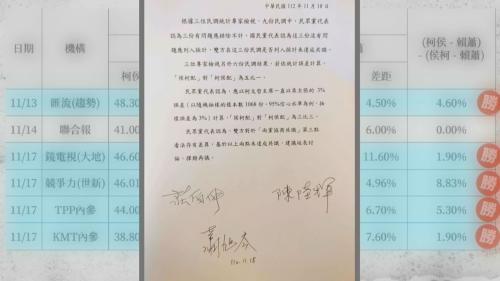 中華民國 112 年 11 月 18 日
根據三位民調統計專家檢視，九份民調中，民眾黨代表
認為三份有問題應排除不計，國民黨代表認為這三份沒有問
題應列入採計，雙方在這三份民調是否列入採計未達成共識。
三位專家檢視另外六份民調結果，對依統計誤差計算，
「侯柯配」對「柯侯配」為五比一。
民眾黨代表認為，應以柯文哲主席一直以來主張的 3%
誤差（以隨機抽樣的樣本數 1068 份，95%信心水準為例，抽
樣誤差為 3%）計算，「侯柯配」對「柯侯配」為三比三。
民眾黨代表認為，雙方對於「兩黨協商共識」第三點
看法存有差異，基於以上兩點未達成共識，建議延長討
論，擇期再議。
陳陸輝
112.11.18
日期 機構 柯侯
11/13 匯流(趨勢) 48.30
11/14 聯合報 41.00
11/17 鏡電視(大地) 46.60
11/17 競爭力(世新) 46.01
11/17 TPP內參 44.00
11/17 KMT內參 38.80
差距 (柯侯 - 賴蕭)
- (侯柯 - 賴蕭)
4.50% 4.60% 勝
6.00% 0.00%
11.60% 1.90% 勝
4.96% 8.83% 勝
6.70% 5.30% 勝
7.60% 1.90% 勝